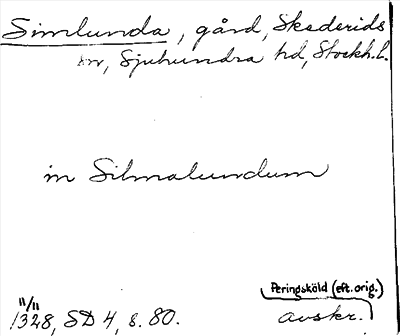 Simlunda, gård, Skederids
sn, Sjuhundra hd, Stockh.l.
in Silmalundum
Peringsköld (eft. orig.)
11/11 1328, SD 4, s. 80. avskr.